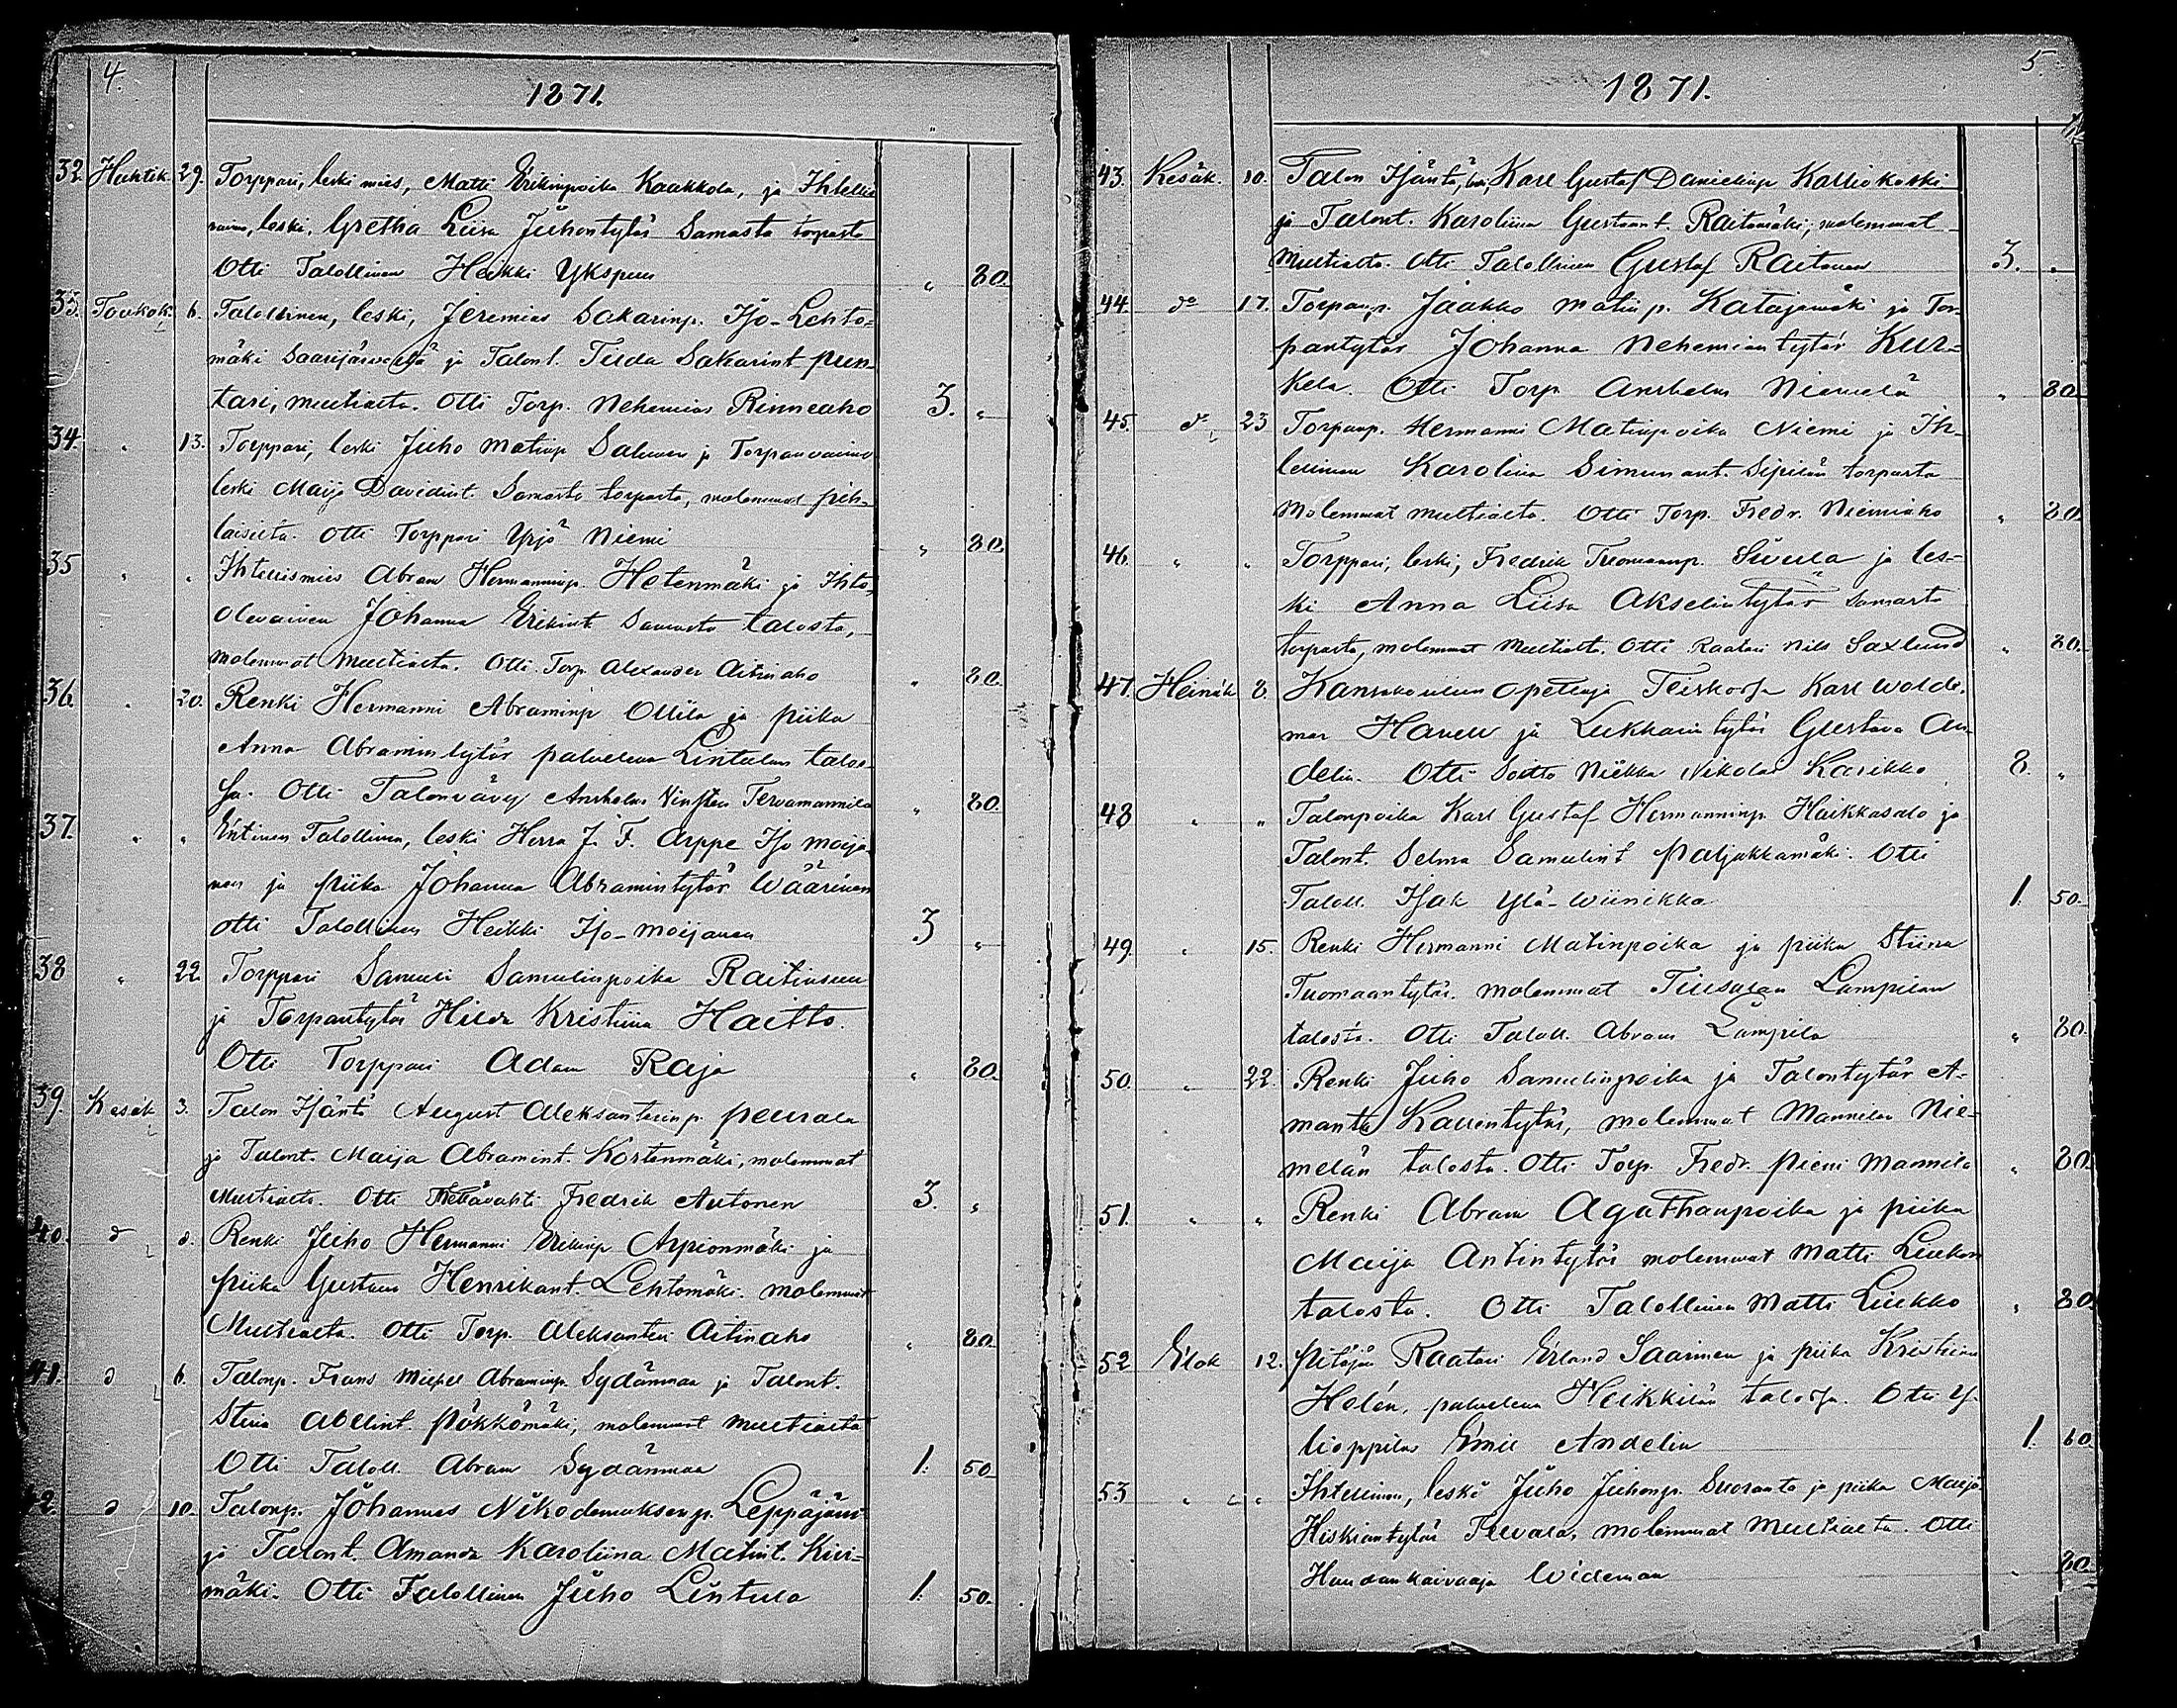 4.
1871.
32. Huhtik. 29. Torppari, leski mies, Matti Erikinpoika Kaakkola, ja Ihtellis
vaimo, leski, Gretha Liisa Juhontytär Samasta torpasta
Otti Talollinen Heikki Ykspuu „ 80.
33. Toukok. 6. Talollinen, leski, Jeremias Sakarinp. Iso-Lehto-
mäki Saarijärveltä ja Talont. Tiida Sakarint. Pun-
tari, multialta. Otti Torp. Nehemias Rinneaho 3. „
34. „ 13. Torppari, leski Juho Matinp. Salunen ja Torpanvaimo
leski Maija Davidint. Samasta torpasta, molemmat pih-
laisista. Otti Torppari Yrjö Niemi „ 80.
35 „ „ Ihtellismies Abram Hermanninp. Hetenmäki ja Ihto-
olevainen Johanna Erikint. Samasta talosta,
molemmat multialta. Otti Torp. Alexander Aitinaho „ 80.
36. „ 20. Renki Hermanni Abraminp. Ollila ja piika
Anna Abramintytär palveleva Lintulan talos-
sa. Otti Talonvävy Anshelm Tervamannila „ 80.
37. „ „ Entinen Talollinen, leski Herra J. F. Arppe Iso moija-
nen ja piika Johanna Abramintytär Wäärinen
otti Talollinen Heikki Iso-moijanen 3 „
38 „ 22 Torppari Samuli Samulinpoika Raitinsuu
ja Torpantytär Hilda Kristiina Haitto.
Otti Torppari Adam Raja „ 80.
39. Kesäk. 3. Talon Isäntä August Aleksanterinp. Peurala
ja Talont. Maija Abramint. Kortenmäki, molemmat
Multialta. Otti Fredrik Autonen 3. „
40. d 8. Renki Juho Hermanni Erikinp. Arpionmäki ja
piika Gustava Henrikant. Lehtomäki. molemmat
Multialta. Otti Torp. Aleksanteri Aitinaho „ 80.
41. d 6. Talonp. Frans Mikael Abraminp. Sydänmaa ja Talont.
Stiina Abelint. Pökkömäki, molemmat multialta
Otti Taloll. Abram Sydänmaa 1. 50
42. d 10. Talonp. Johannes Nikodemuksenp. Leppäjärvi
ja Talont. Amanda Karoliina Matint. Kivi-
mäki. Otti Talollinen Juho Lintula 1. 50.
5.
1871.
43. Kesäk. 10. Talon Isäntä, Karl Gustaf Danielinp. Kalliokoski
ja Talont. Karoliina Gustaant. Raitamäki, molemmat
Multialta. Otti Talollinen Gustaf Raitanen 3. „
44. do 17. Torpanp. Jaakko Matinp. Katajamäki ja Tor-
pantytär Johanna Nehemiantytär Kur-
kela. Otti Torp. Anshelm Niemelä „ 80.
45. d 23 Torpanp. Hermanni Matinpoika Niemi ja Ih-
tellinen Karoliina Simunant. Sipilän torpasta
Molemmat multialta. Otti Torp. Fredr. Niemiaho „ 80.
46. „ „ Torppari, leski, Fredrik Tuomaanp. Siivula ja les-
ki Anna Liisa Akselintytär Samasta
torpasta, molemmat Multialt. Otti Raatari Nils Saxlund „ 80.
47. Heinäk. 8. Kansakoulun opettaja Karl Wolde-
mar Haveu ja Lukkarintytär Gustava An-
delin. Otti Soitto Niekka Nikolas Karikko 8. „
48 „ „ Talonpoika Karl Gustaf Hermanninp. Haikkasalo ja
Talont. Selma Samulint. Paljakkamäki. Otti
Taloll. Isak Ylä-Wiinikka 1. 50.
49. „ 15. Renki Hermanni Matinpoika ja piika Stiina
Tuomaantytär. molemmat Tiusalan Lampilan
talosta. Otti Taloll. Abram Lampila „ 80.
50. „ 22. Renki Juho Samulinpoika ja Talontytär A-
manta Kallentytär, molemmat Mannilan Nie-
melän talosta. Otti Torp. Fredr. pieni Mannila „ 80.
51. „ „ Renki Abram Agathanpoika ja piika
Maija Antintytär molemmat Matti Liukon
talosta. Otti Talollinen Matti Liukko „ 80
52 Elok 12. Pitäjän Raatari Erland Saarinen ja piika Kristiina
Helén, palveleva Heikkilän talossa. Otti Y-
lioppilas Emil Andelin 1. 60.
53 „ „ Ihtellinen, leski Juho Juhonp. Suoranta ja piika Maija
Hiskiantytär molemmat Multialta. Otti
Haudankaivaaja Wideman „ 80.